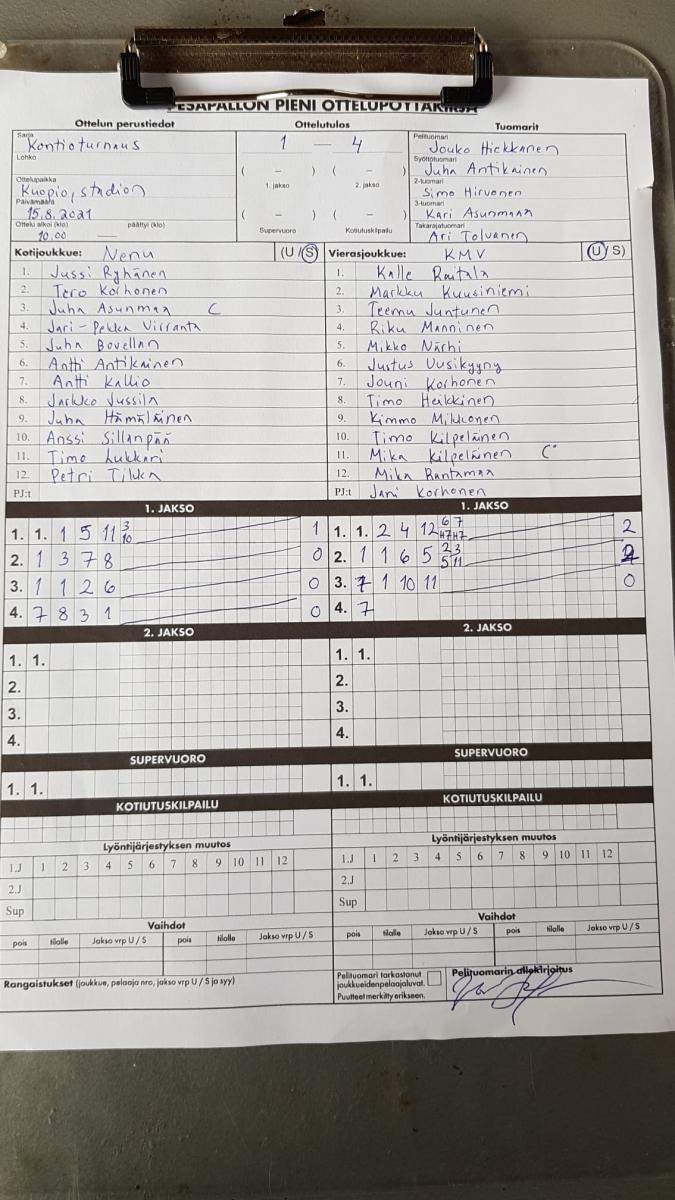 PESÄPALLON PIENI OTTELUPÖYTÄKIRJA
Ottelun perustiedot
Sarja
Kontioturnaus
Lohko
Ottelupaikka
Kuopio, stadion
Päivämäärä
15.8.2021
Ottelu alkoi (klo) päättyi (klo)
10.00 —
Ottelutulos
1 — 4
( – ) ( – )
1. jakso 2. jakso
( – ) ( – )
Supervuoro Kotiutuskilpailu
Tuomarit
Pelituomari
Jouko Hickkanen
Syöttötuomari
Juha Antikainen
2-tuomari
Simo Hirvonen
3-tuomari
Kari Asunmaa
Takarajatuomari
Ari Tolvanen
Kotijoukkue: Nenu (U / S)
1. Jussi Ryhänen
2. Tero Korhonen
3. Juha Asunmaa C
4. Jari-Pekka Virranta
5. Juha Bovellan
6. Antti Antikainen
7. Antti Kallio
8. Jarkko Jussila
9. Juha Hämäläinen
10. Anssi Sillanpää
11. Timo Lukkari
12. Petri Tikka
PJ:t
Vierasjoukkue: KMV (U / S)
1. Kalle Raitala
2. Markku Kuusiniemi
3. Teemu Juntunen
4. Riku Manninen
5. Mikko Närhi
6. Justus Uusikyyny
7. Jouni Korhonen
8. Timo Heikkinen
9. Kimmo Mikkonen
10. Timo Kilpeläinen
11. Mika Kilpeläinen C
12. Mika Rantamaa
PJ:t Jani Korhonen
1. JAKSO
1. 1. 1 5 11 3 10 1
2. 1 3 7 8 0
3. 1 1 2 6 0
4. 7 8 3 1 0
1. JAKSO
1. 1. 2 4 12 6 7 H7 H7 2
2. 1 1 6 5 2 3 5 11 2
3. 7 1 10 11 0
4. 7
2. JAKSO
1. 1.
2.
3.
4.
2. JAKSO
1. 1.
2.
3.
4.
SUPERVUORO
1. 1.
SUPERVUORO
1. 1.
KOTIUTUSKILPAILU
KOTIUTUSKILPAILU
Lyöntijärjestyksen muutos
1.J 1 2 3 4 5 6 7 8 9 10 11 12
2.J
Sup
Lyöntijärjestyksen muutos
1.J 1 2 3 4 5 6 7 8 9 10 11 12
2.J
Sup
Vaihdot
pois tilalle Jakso vrp U / S pois tilalle Jakso vrp U / S
Vaihdot
pois tilalle Jakso vrp U / S pois tilalle Jakso vrp U / S
Rangaistukset (joukkue, pelaaja nro, jakso vrp U / S ja syy)
Pelituomari tarkastanut
joukkueidenpelaajaluvat.
Puutteet merkitty erikseen.
Pelituomarin allekirjoitus